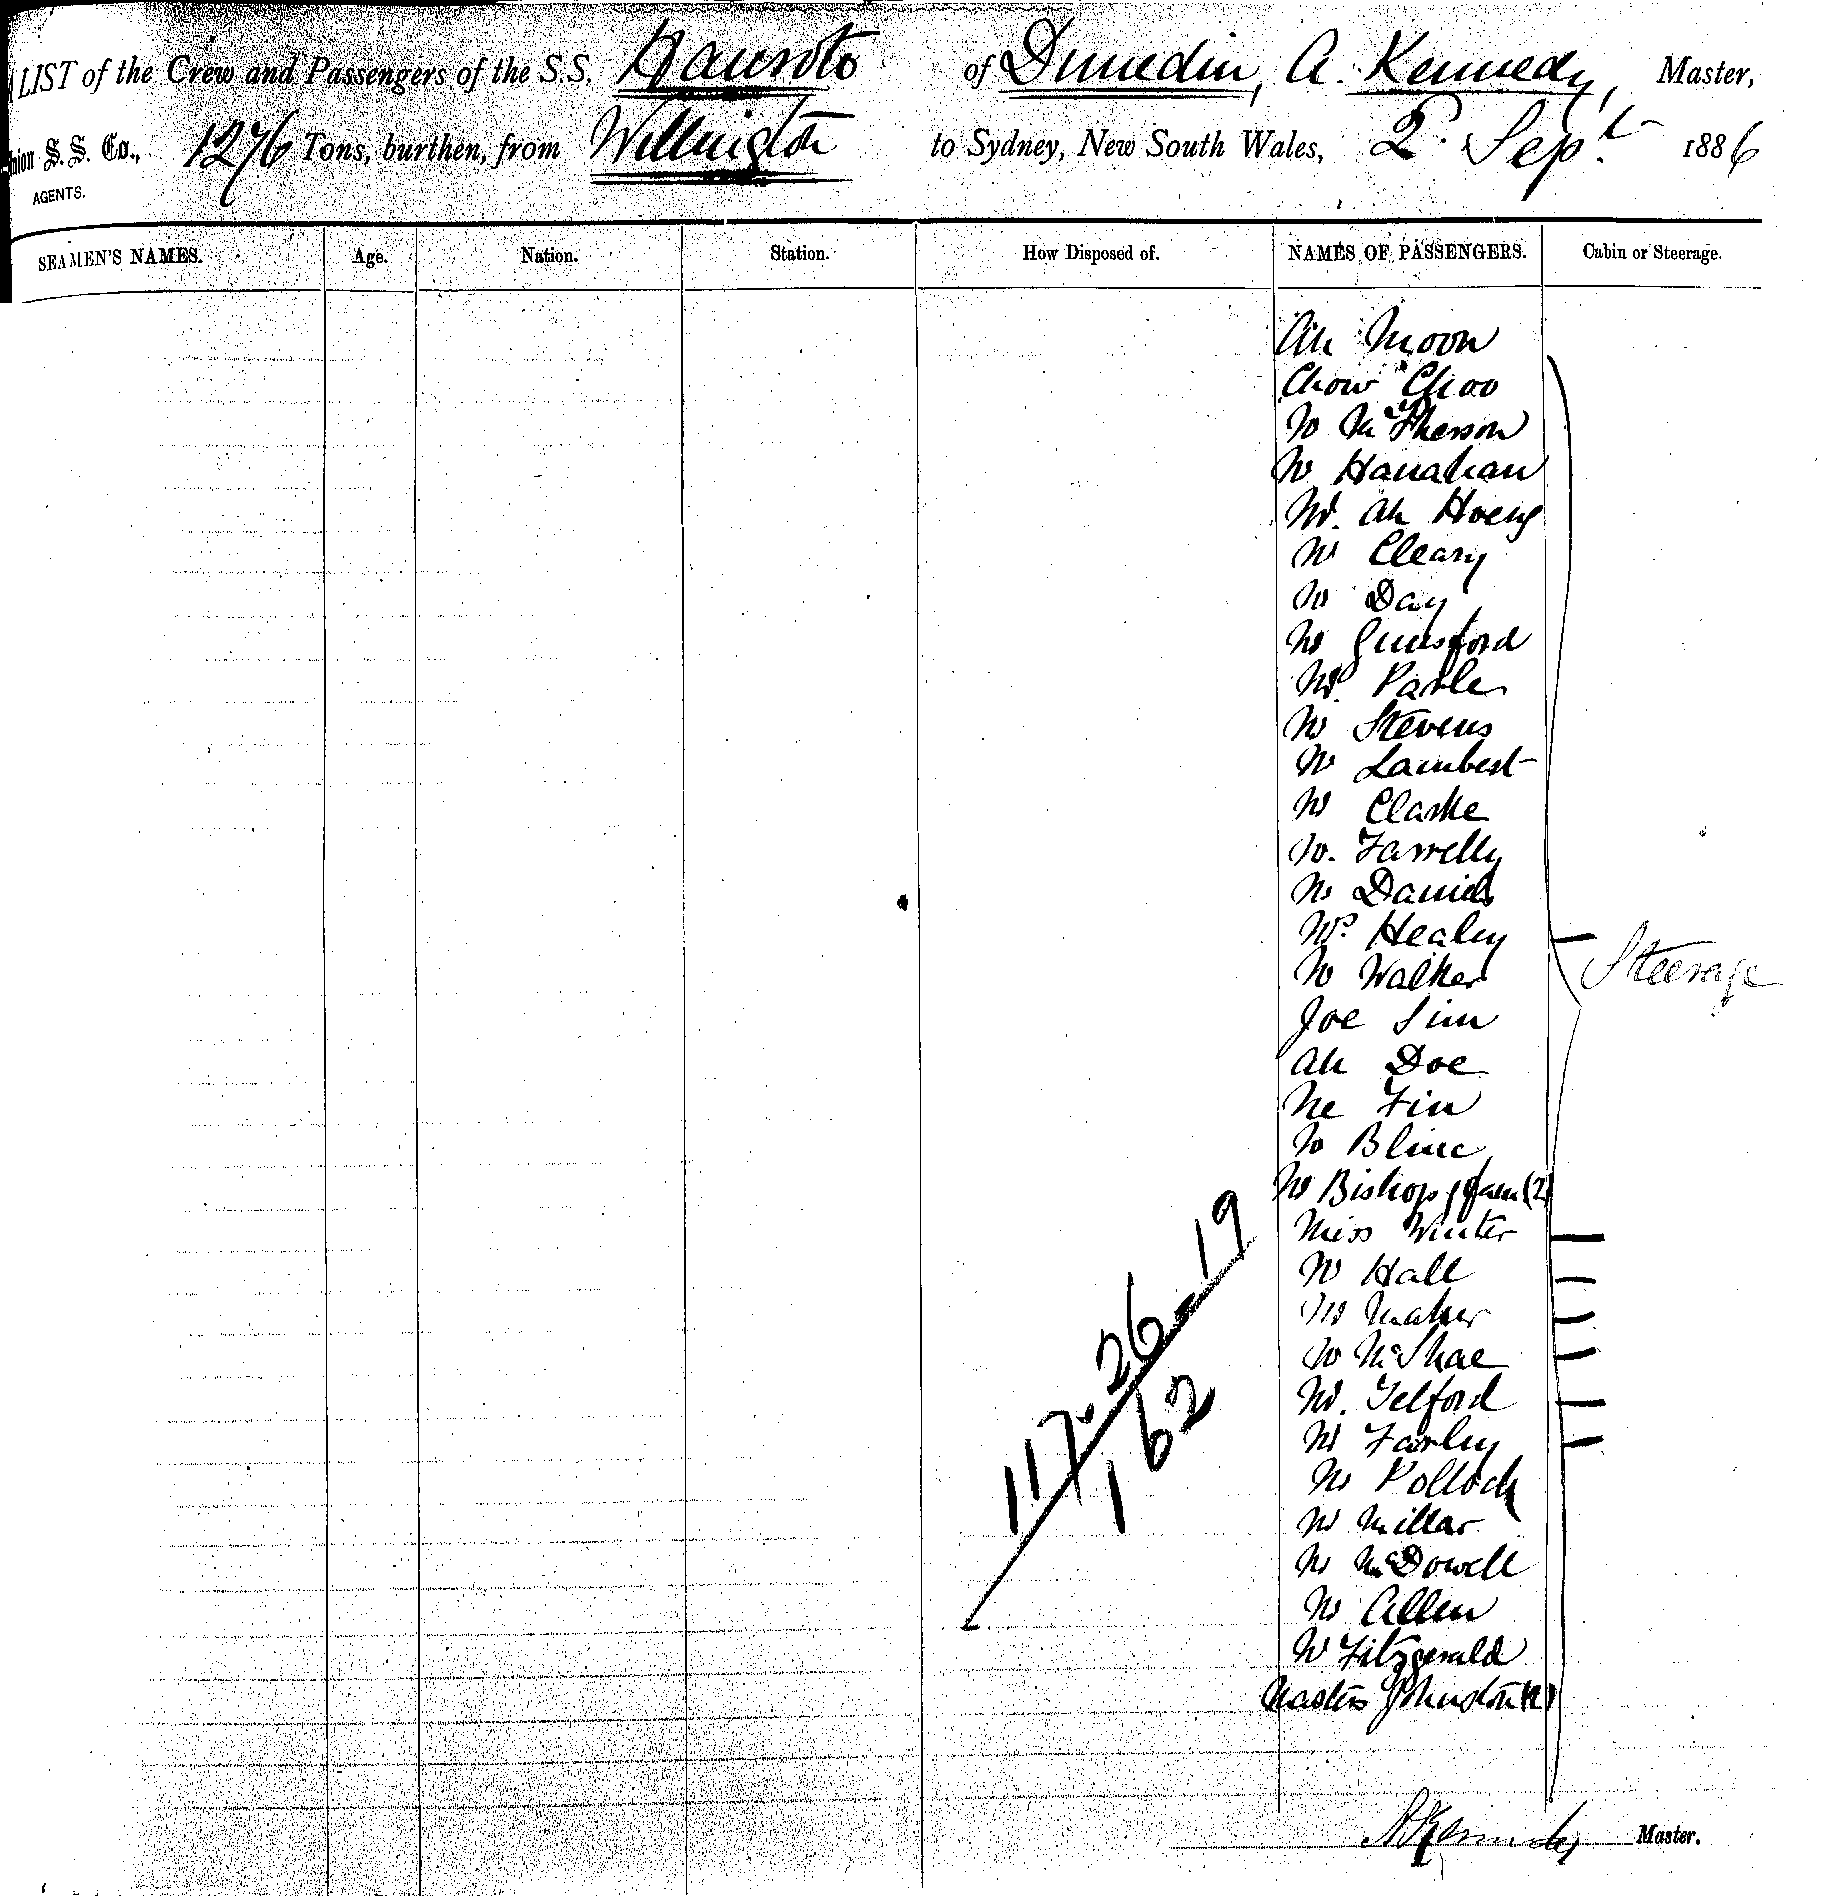 LIST of the Crew and Passengers of the S.S. Hauroto of Dunedin, A. Kennedy, Master,
Union S. S. Co., 1276 Tons, burthen, from Wellington to Sydney, New South Wales, 2 Sept 1886
AGENTS.
SEAMEN'S NAMES. Age. Nation. Station. How Disposed of. NAMES OF PASSENGERS. Cabin or Steerage.
Ah Moon
Chow Choo
Mr McPherson
Mr Hanahan
Mr. Ah Hoeng
Mr Cleary
Mr Day
Mr Gunsford
Mr Parle
Mr Stevens
Mr Lambert
Mr Clarke
Mr. Farrelly
Mr Daniels
Mrs Healey
Mr Walker
Steerage
Joe Sim
Ah Doe
Ne Fin
Mr Bline
Mr Bishop & fam (2)
Miss Winter
Mr Hall
Mr Maher
Mr McShae
Mr. Telford
Mr Farley
Mr Pollock
Mr Millar
Mr McDowell
Mr Allen
Mr Fitzgerald
Masters Johnston (2)
117. 26 - 19
162
A Kennedy Master.